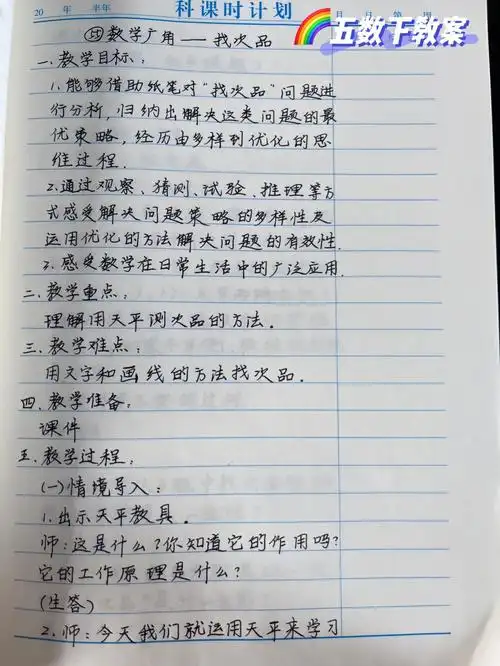 20 年 半年 科课时计划 月 日 第 周
五数下教案
㈤数学广角——找次品
一.教学目标:
1.能够借助纸笔对“找次品”问题进
行分析,归纳出解决这类问题的最
优策略,经历由多样到优化的思
维过程.
2.通过观察、猜测、试验、推理等方
式感受解决问题策略的多样性及
运用优化的方法解决问题的有效性.
3.感受数学在日常生活中的广泛应用.
二.教学重点:
理解用天平测次品的方法.
三.教学难点:
用文字和画线的方法找次品.
四.教学准备:
课件
五.教学过程:
(一)情境导入:
1.出示天平教具.
师:这是什么?你知道它的作用吗?
它的工作原理是什么?
(生答)
2.师:今天我们就运用天平来学习